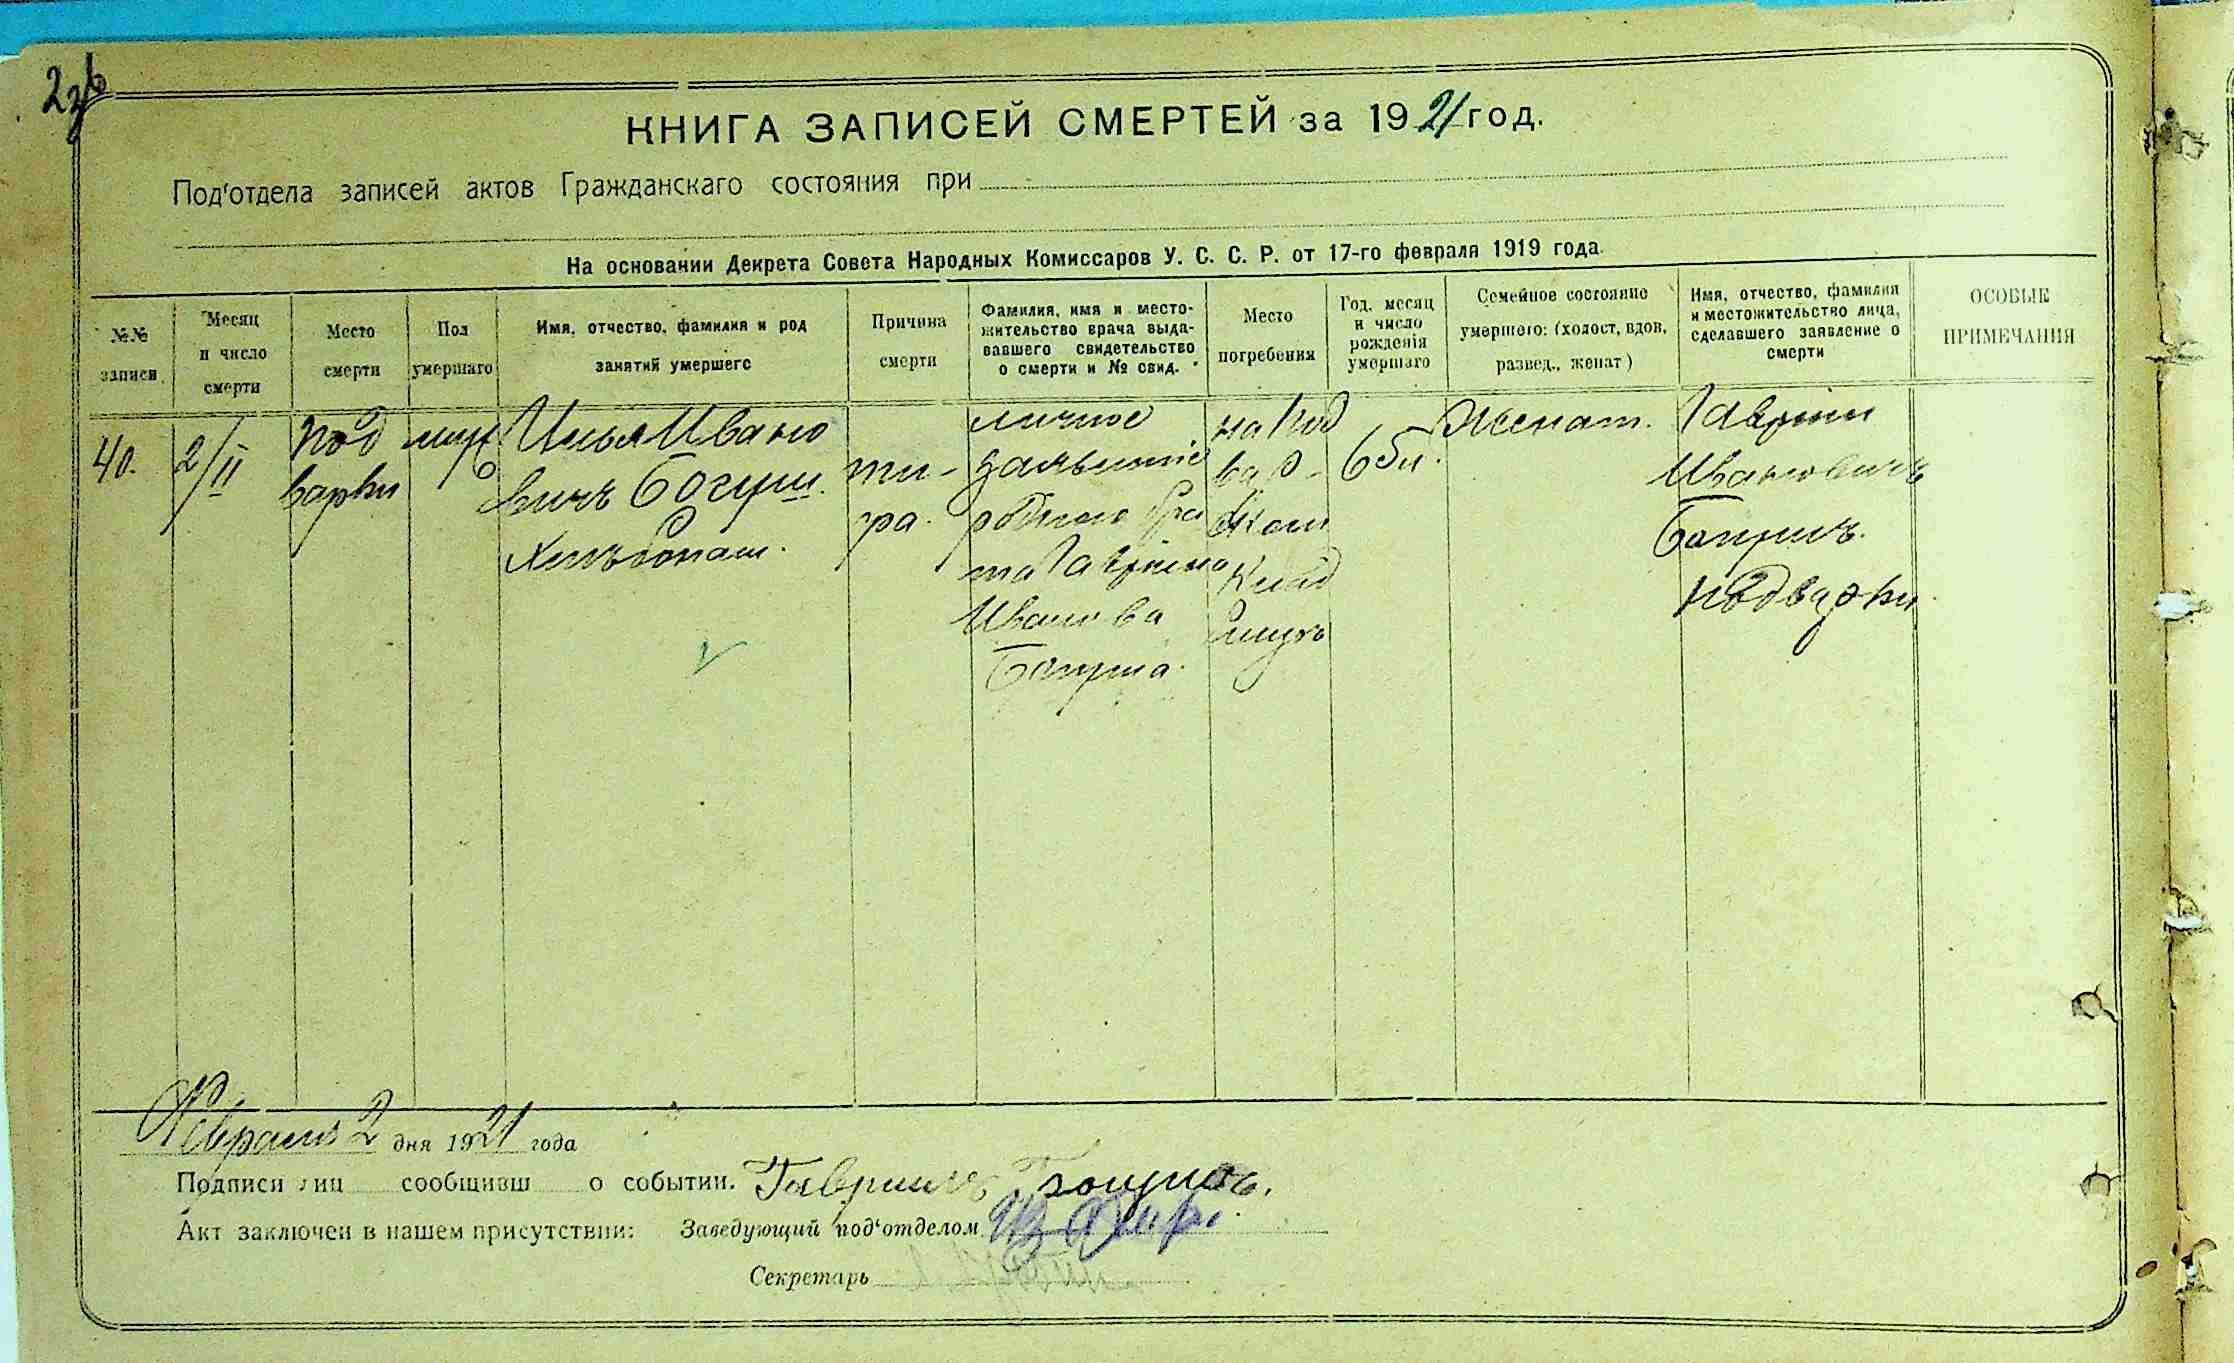 236
КНИГА ЗАПИСЕЙ СМЕРТЕЙ за 1921 год.
Под'отдела записей актов Гражданскаго состояния при
На основании Декрета Совета Народных Комиссаров У. С. С. Р. от 17-го февраля 1919 года
№№ записи
Месяц и число смерти
Место смерти
Пол умершаго
Имя, отчество, фамилия и род занятий умершего
Причина смерти
Фамилия, имя и место-жительство врача выда-вавшего свидетельство о смерти и № свид.
Место погребения
Год, месяц и число рождения умершаго
Семейное состояние умершего: (холост, вдов, развед., женат)
Имя, отчество, фамилия и местожительство лица, сделавшего заявление о смерти
ОСОБЫЕ ПРИМЕЧАНИЯ
40.
2/II
Под
варки
муж
Илья Ивано
вичъ Богуш.
Хлѣбопаш.
ти-
фа.
личное
заявление
родного бра
та Гаврiила
Иванова
Богуша.
на Под
вар-
ском
клад
бищѣ
65 л.
Женат.
Гаврiил
Ивановичъ
Богушъ.
Подварки
Февраля 2 дня 1921 года
Подписи лиц сообщивш о событии. Гаврiилъ Богушъ.
Акт заключен в нашем присутствии: Заведующий под'отделом
Секретарь